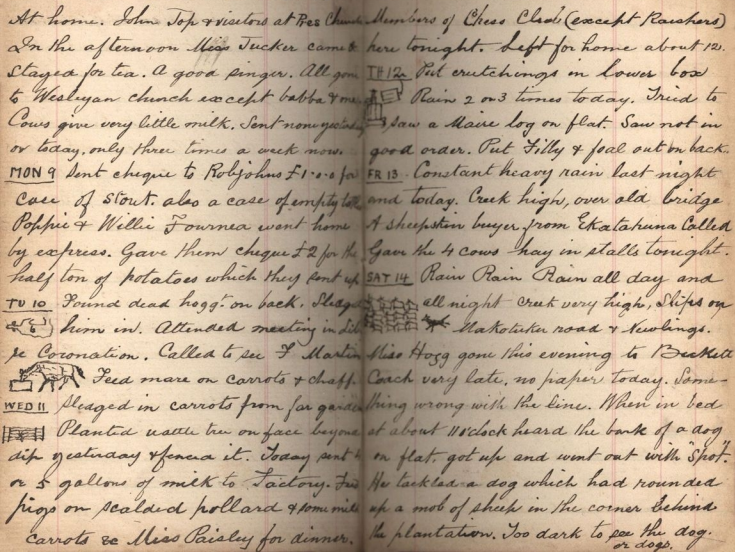 At home. John Top & visitors at Pres Church
In the afternoon Miss Tucker came &
stayed for tea. A good singer. All gone
to Wesleyan church except babba & me.
Cows give very little milk. Sent none yesterday
or today, only three times a week now.
MON 9 Sent cheque to Robjohns £1.0.0 for
case of stout. also a case of empty bottles
Poppie & Willie Fournea went home
by express. Gave them cheque £2 for the
half ton of potatoes which they sent up
TU 10 Found dead hogg't on back. Sledged
him in. Attended meeting in
re Coronation. Called to see F Martin
Feed mare on carrots & chaff.
WED 11 Sledged in carrots from far garden
Planted wattle tree on face beyond
dip yesterday & fenced it. Today sent 4
or 5 gallons of milk to Factory. Fed
pigs on scalded pollard & some milk
carrots &c Miss Paisley for dinner.
Members of Chess Club (except Kaishers)
here tonight. Left for home about 12.
TH 12 Put crutchings in lower box
Rain 2 or 3 times today. Tried to
saw a Maire log on flat. Saw not in
good order. Put Filly & foal out on back.
FR 13. Constant heavy rain last night
and today. Creek high, over old bridge
A sheepskin buyer from Ekatahuna Called
Gave the 4 cows hay in stalls tonight.
SAT 14 Rain Rain Rain all day and
all night creek very high, Slips on
Makotuku road &
Miss Hogg gone this evening to Beckett
Coach very late, no paper today. Some-
thing wrong with the line. When in bed
at about 11 o'clock heard the bark of a dog
on flat. got up and went out with "Spot".
He tackled a dog which had rounded
up a mob of sheep in the corner behind
the plantation. Too dark to see the dog.
or dogs.